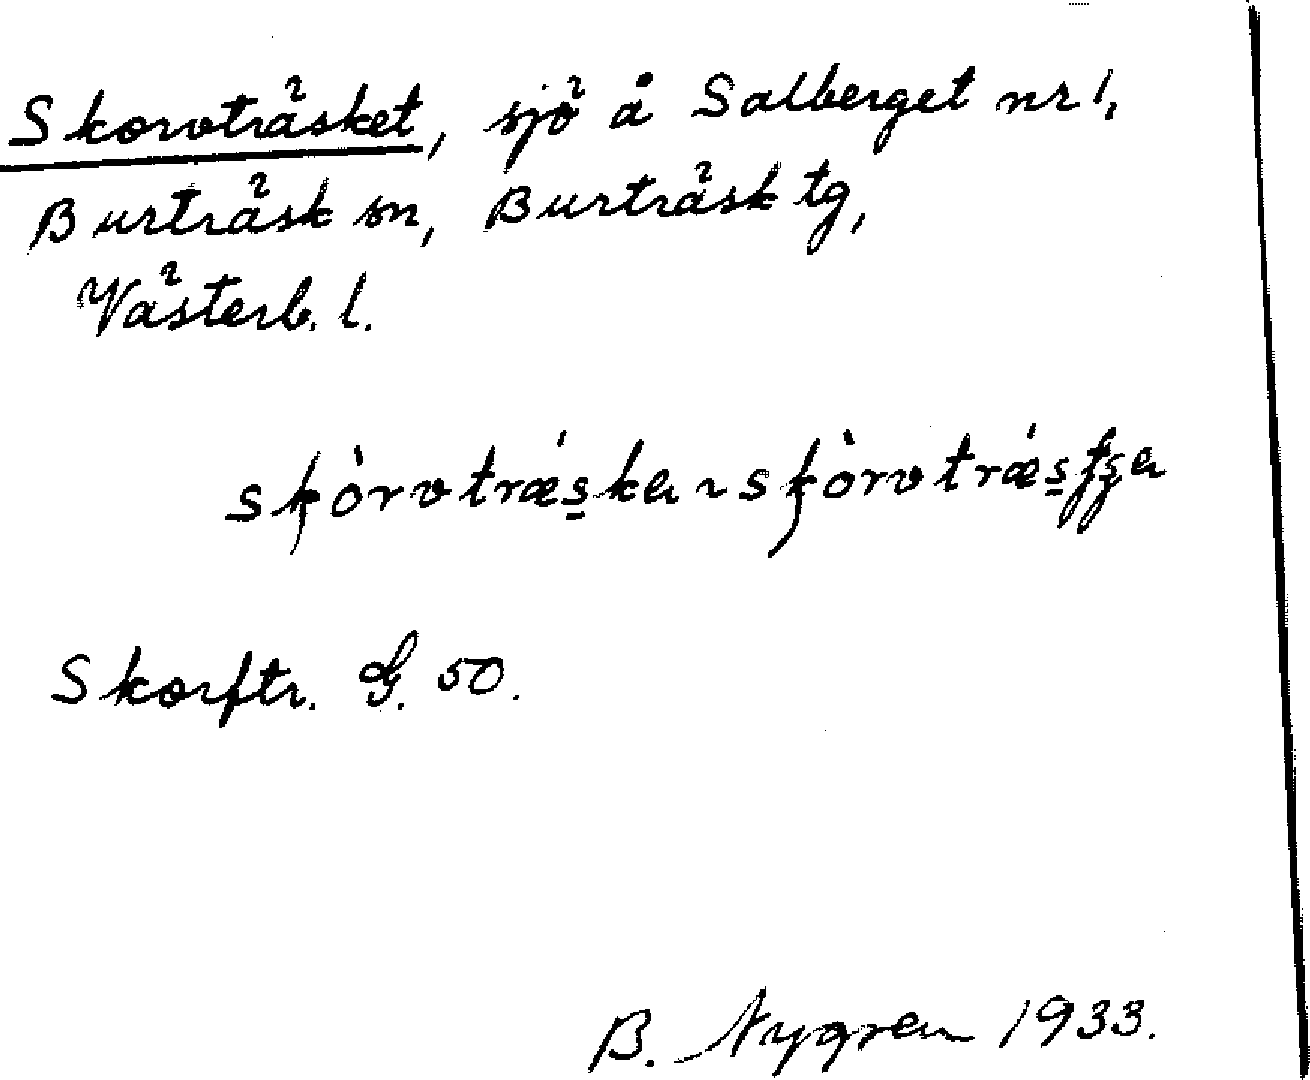 Skorvträsket, sjö å Salberget nr 1,
Burträsk sn, Burträsk tg,
Västerb. l.
Skorftr. G. 50.
B. Nygren 1933.